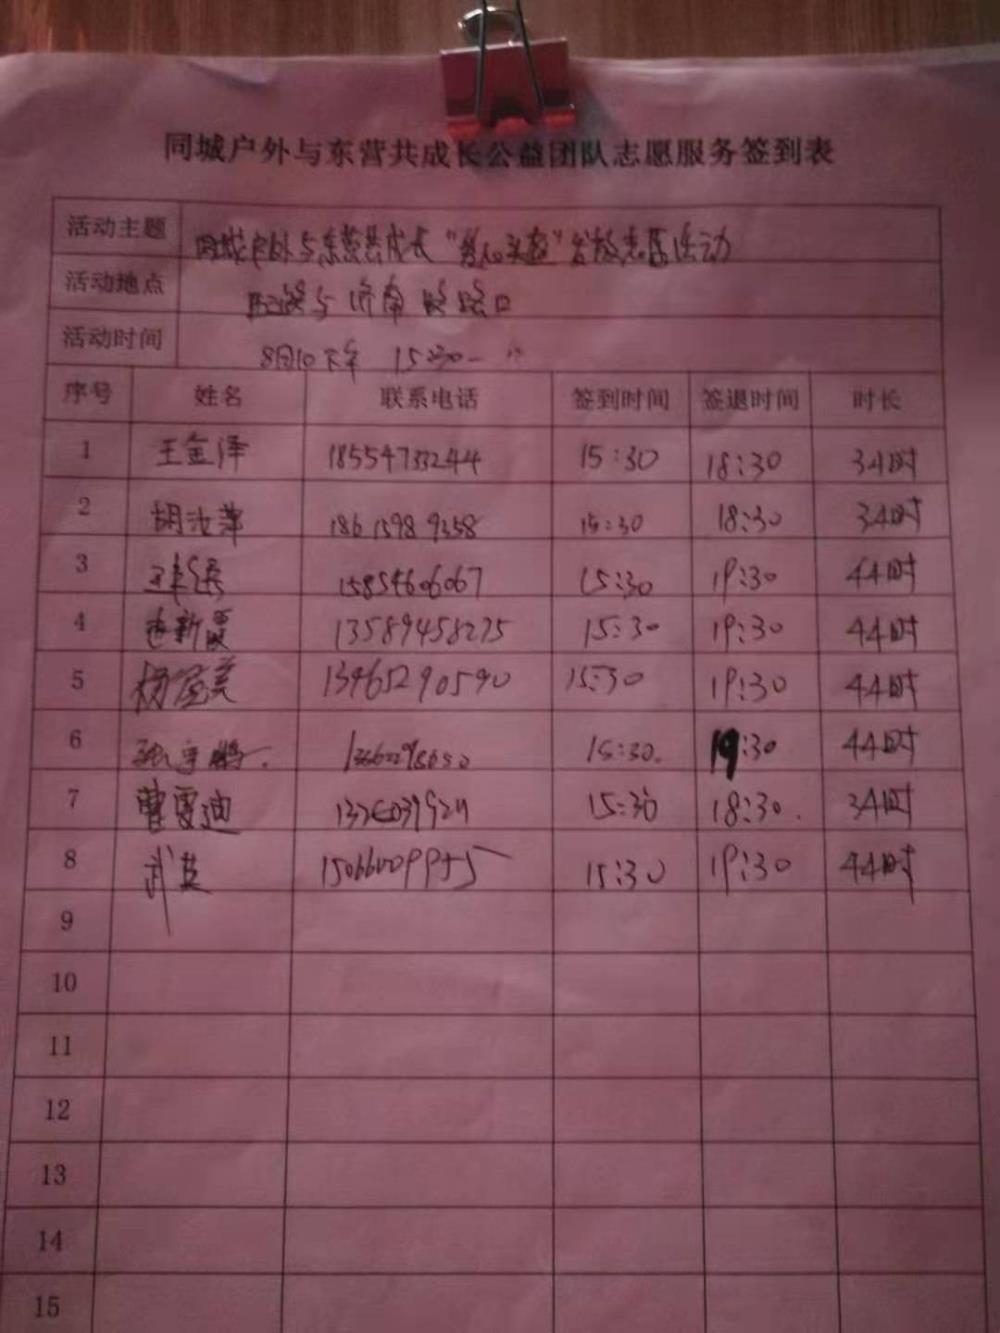 同城户外与东营共成长公益团队志愿服务签到表
活动主题 同城户外与东营共成长"爱心头盔"发放志愿活动
活动地点 路与济南路路口
活动时间 8月10下午 15:30-
序号 姓名 联系电话 签到时间 签退时间 时长
1 王金泽 18554733244 15:30 18:30 3小时
2 胡汝萍 18615989358 15:30 18:30 3小时
3 15854606067 15:30 19:30 4小时
4 新霞 13589458275 15:30 19:30 4小时
5 杨 美 13465290590 15:30 19:30 4小时
6 15:30. 19:30 4小时
7 曹雪迪 15:30 18:30. 3小时
8 武英 15:30 19:30 4小时
9
10
11
12
13
14
15